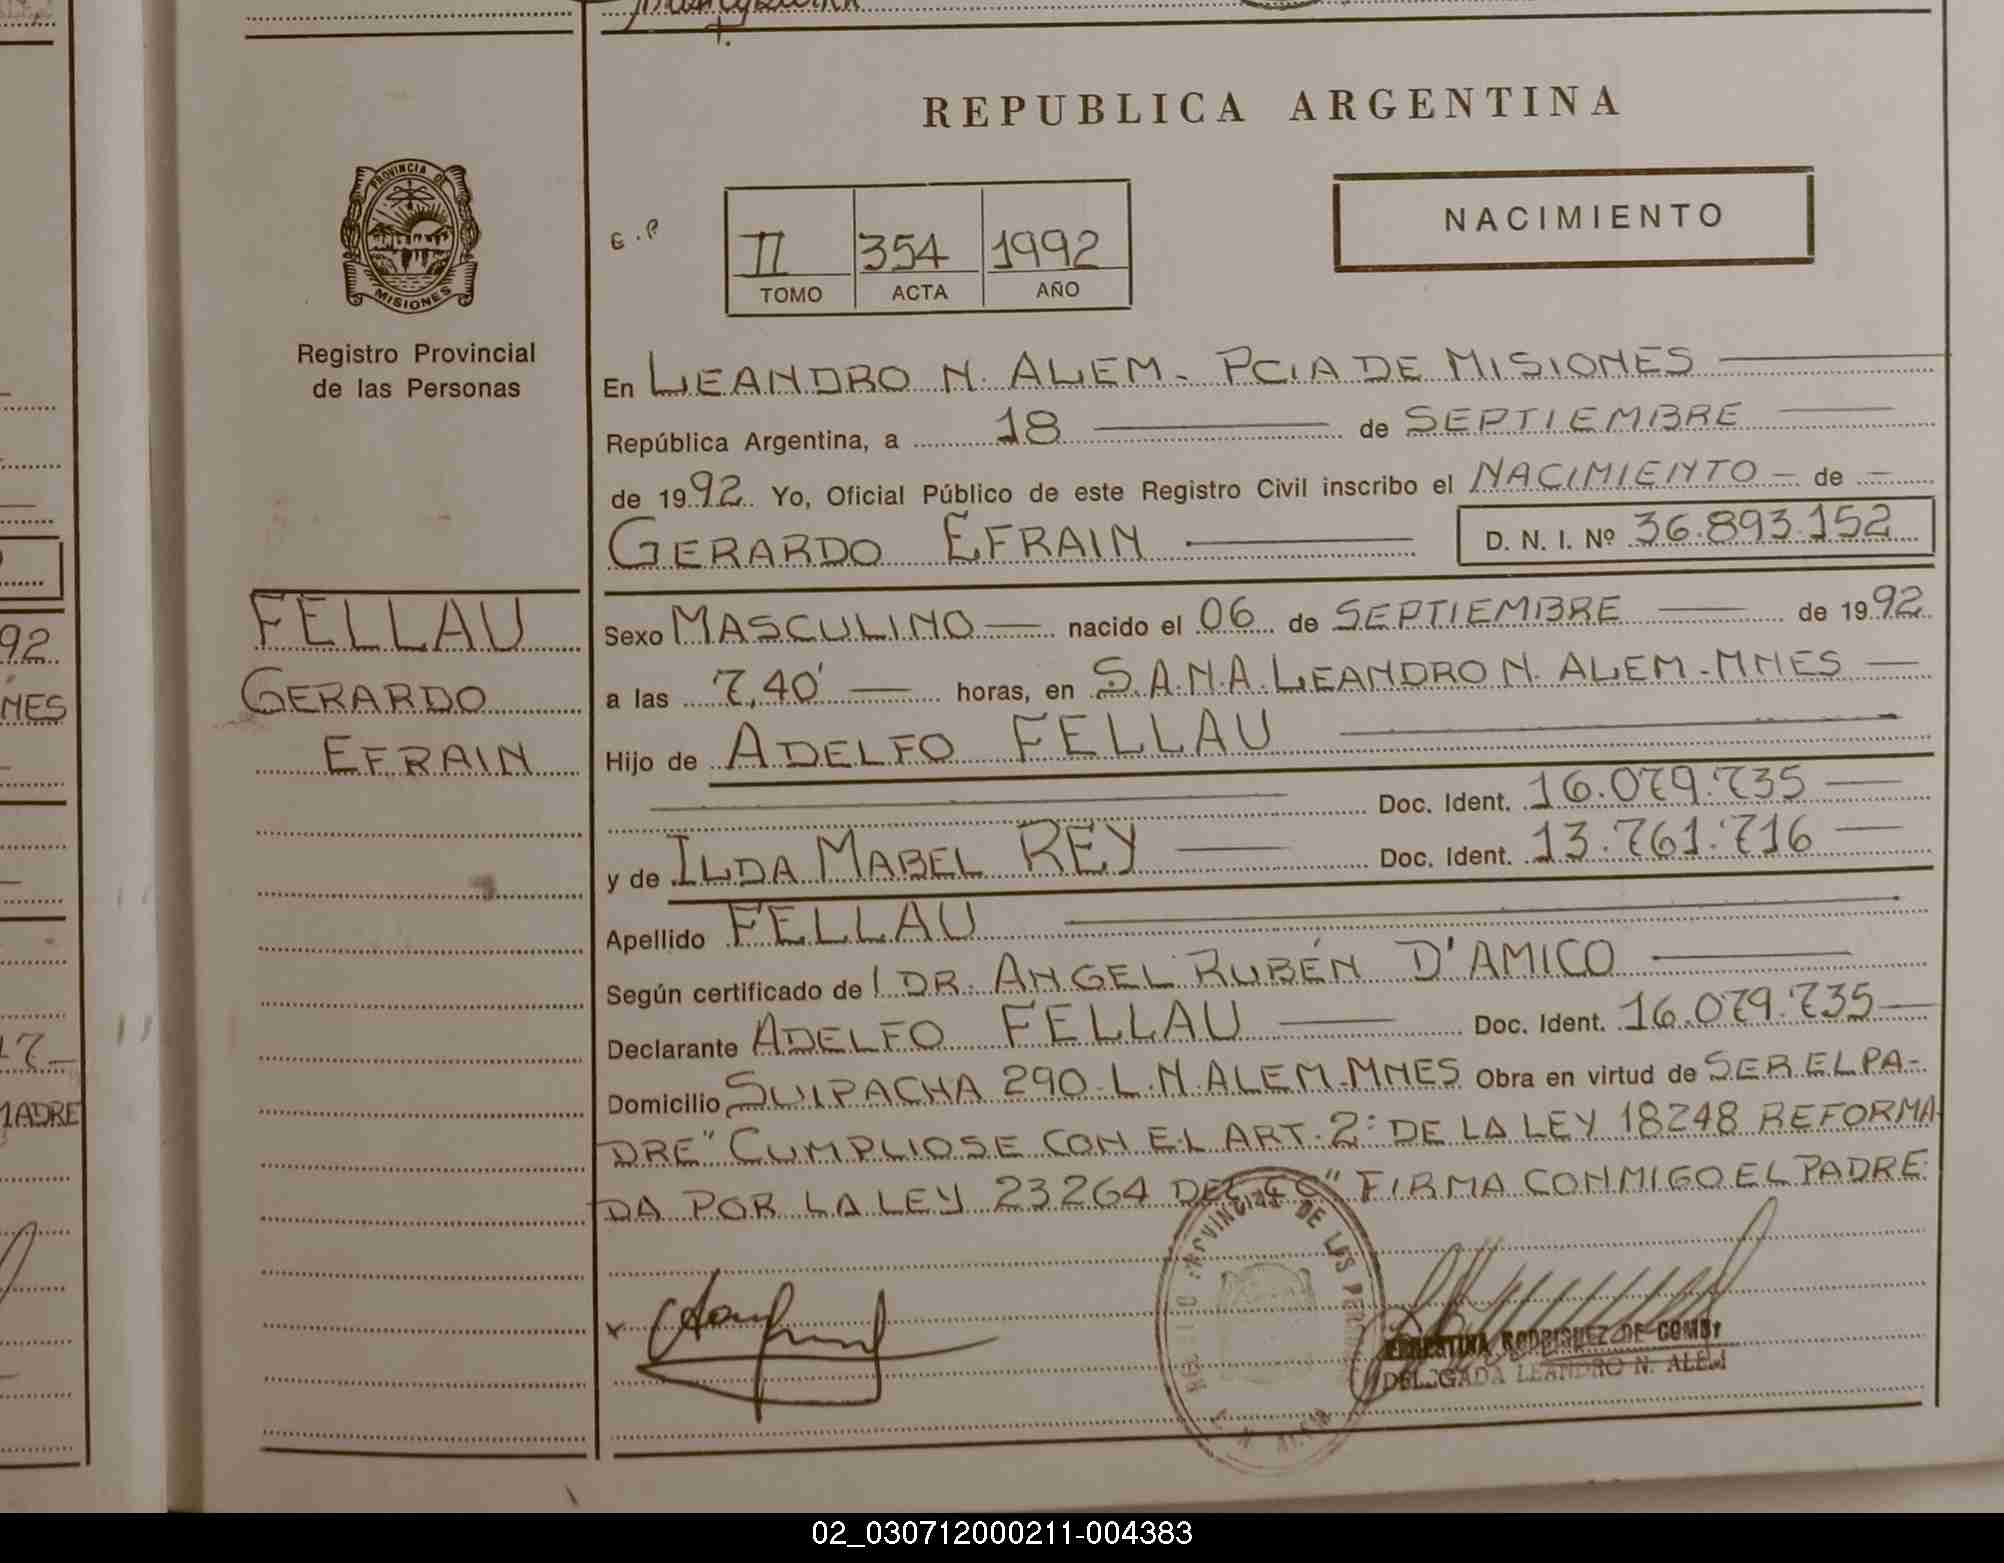 REPUBLICA ARGENTINA
PROVINCIA DE
MISIONES
Registro Provincial
de las Personas
E.P
II 354 1992
TOMO ACTA AÑO
NACIMIENTO
En LEANDRO N. ALEM - PCIA DE MISIONES
República Argentina, a 18 de SEPTIEMBRE
de 1992. Yo, Oficial Público de este Registro Civil inscribo el NACIMIENTO - de -
GERARDO EFRAIN D. N. I. Nº 36.893.152
FELLAU
GERARDO
EFRAIN
Sexo MASCULINO nacido el 06 de SEPTIEMBRE de 1992
a las 7,40' horas, en S.A.N.A. LEANDRO N. ALEM - MNES
Hijo de ADELFO FELLAU
Doc. Ident. 16.079.735
y de ILDA MABEL REY Doc. Ident. 13.761.716
Apellido FELLAU
Según certificado de l DR. ANGEL RUBÉN D'AMICO
Declarante ADELFO FELLAU Doc. Ident. 16.079.735
Domicilio SUIPACHA 290 - L.N. ALEM - MNES Obra en virtud de SER EL PA-
DRE" CUMPLIOSE CON EL ART. 2: DE LA LEY 18248 REFORMA
DA POR LA LEY 23264 DEL CC" FIRMA CONMIGO EL PADRE
PROVINCIAL DE LAS
L. N. ALEM
ERNESTINA RODRIGUEZ DE
DELEGADA LEANDRO N. ALEM
92
NES
MADRE
02_030712000211-004383